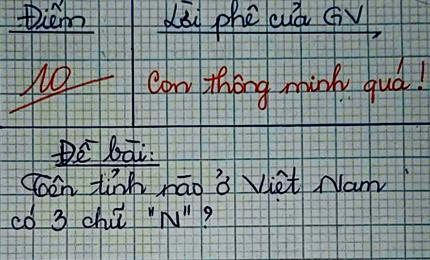 Điểm
Lời phê của GV
10
Con thông minh quá!
Đề bài:
Tên tỉnh nào ở Việt Nam
có 3 chữ "N"?